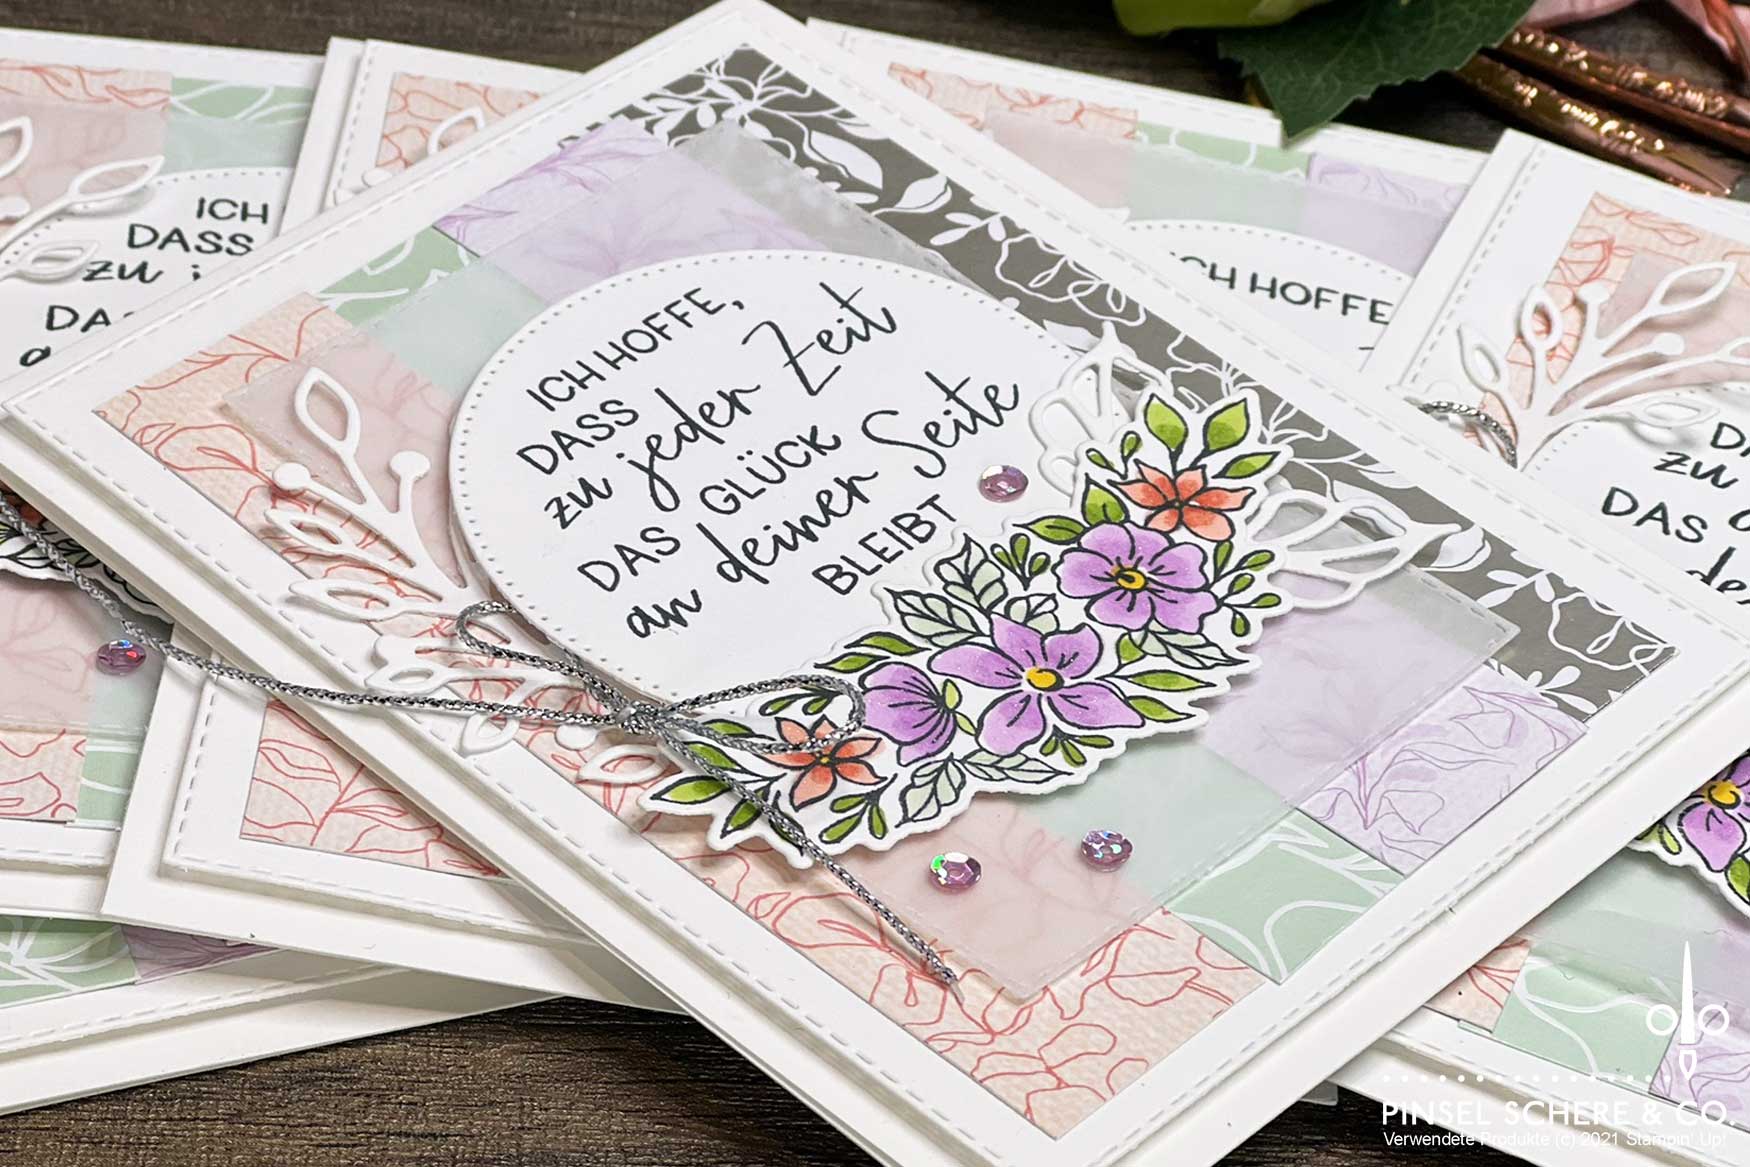 ICH HOFFE,
DASS
zu jeder Zeit
DAS GLÜCK
an deiner Seite
BLEIBT
ICH
DASS
zu
ICH HOFFE
zu
DAS
PINSEL SCHERE & CO.
Verwendete Produkte (c) 2021 Stampin' Up!